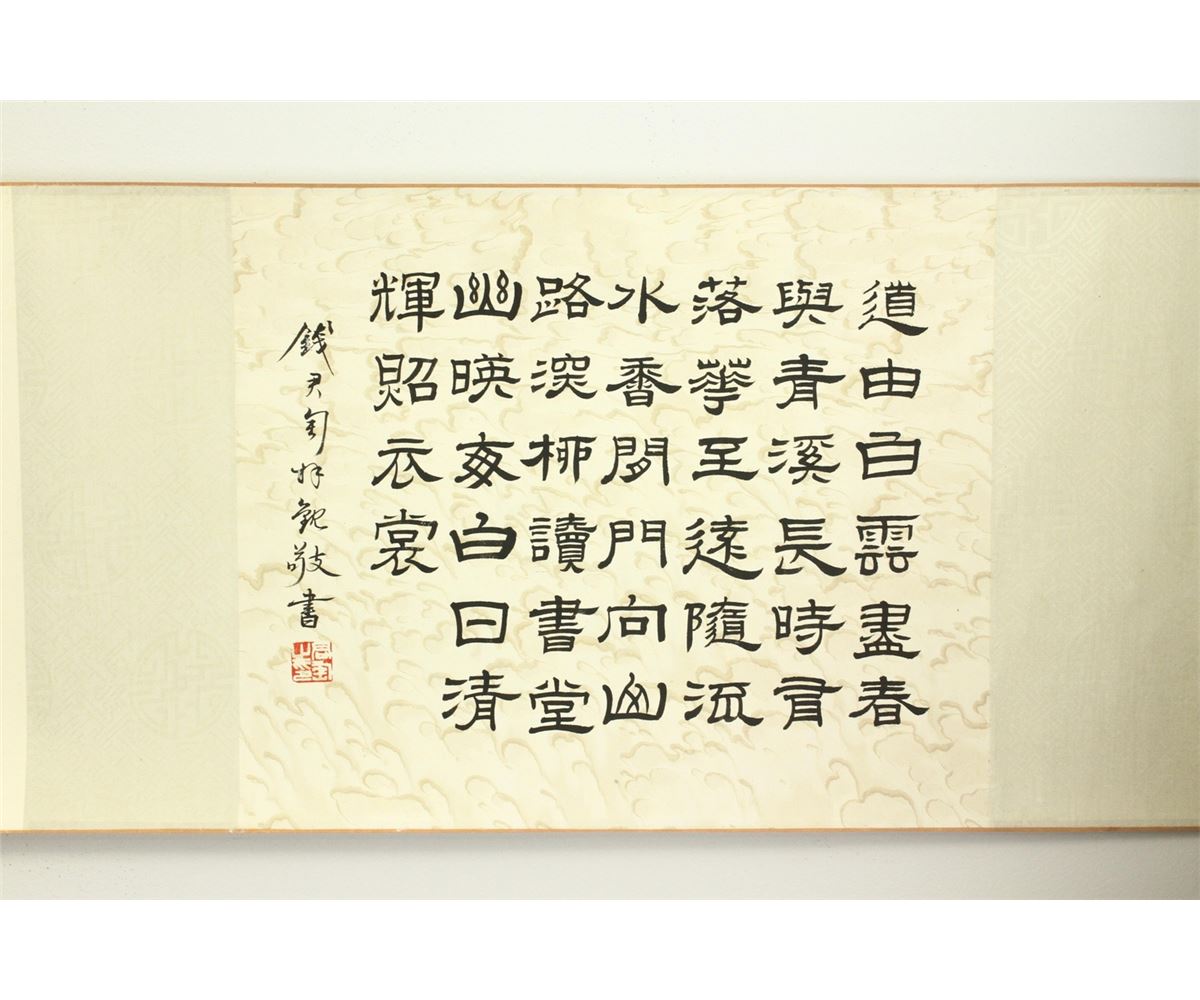 道由白雲盡春
與青溪長時有
落華至遠隨流
水香閒門向山
路深柳讀書堂
幽映每白日清
輝照衣裳
錢君匋敬書